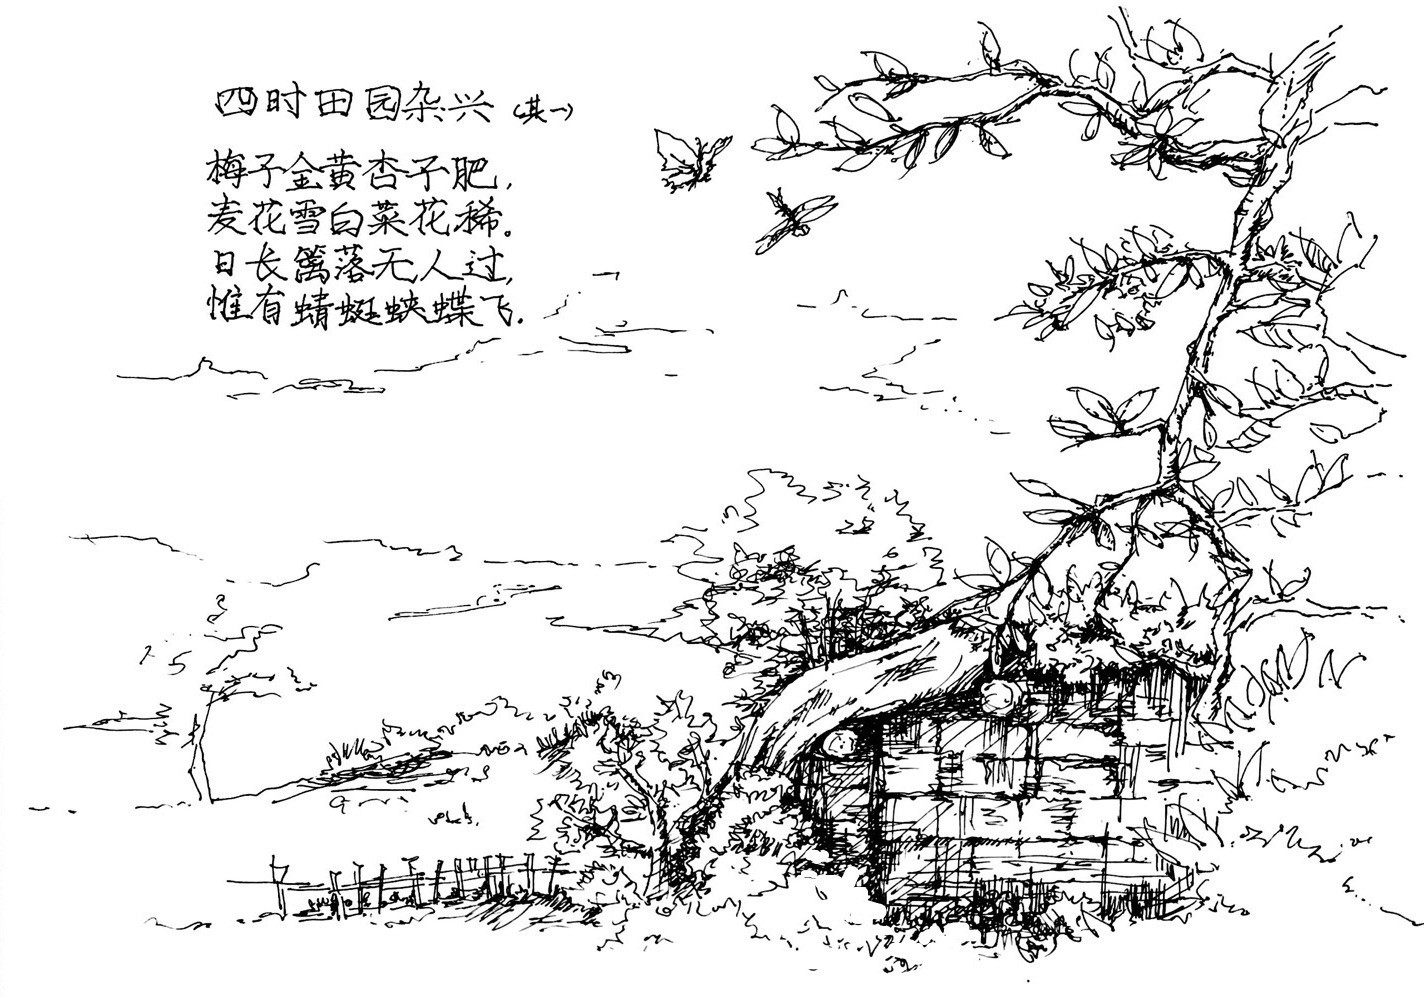 四时田园杂兴（其一）
梅子金黄杏子肥，
麦花雪白菜花稀。
日长篱落无人过，
惟有蜻蜓蛱蝶飞.